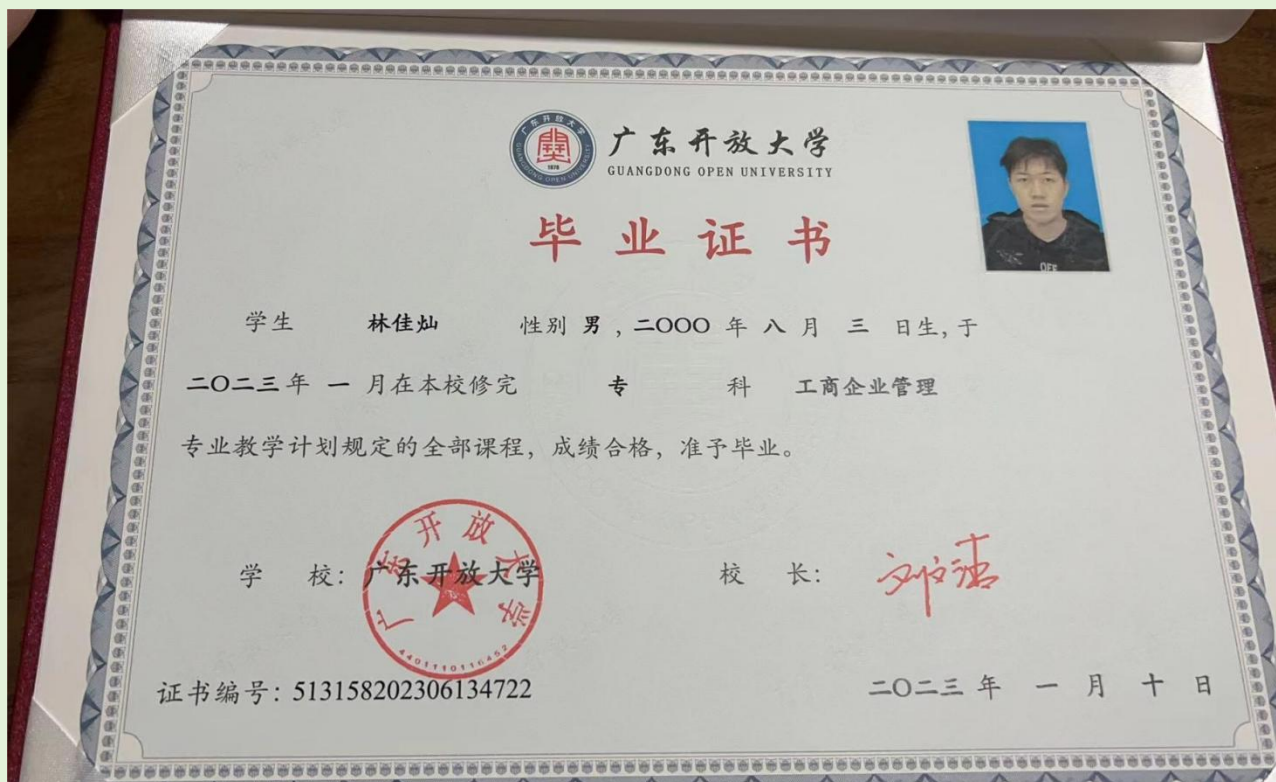 广东开放大学
GUANGDONG OPEN UNIVERSITY
毕业证书
学生 林佳灿 性别 男，二〇〇〇 年 八 月 三 日生，于
二〇二三年 一 月在本校修完 专 科 工商企业管理
专业教学计划规定的全部课程，成绩合格，准予毕业。
学 校：广东开放大学 校 长：
广东开放大学
4401110116452
证书编号：513158202306134722 二〇二三 年 一 月 十 日